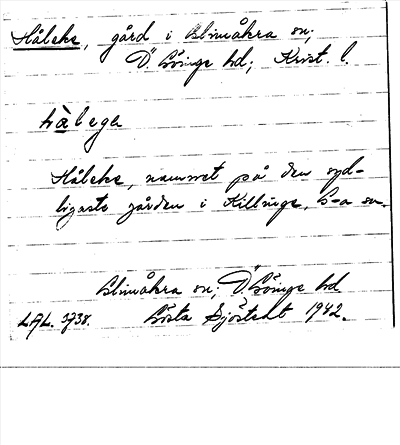 Håleke, gård i Glimåkra sn;
Ö. Göinge hd; Krist. l.
hàlega
Håleke, namnet på den syd-
ligaste gården i Killinge, G-a sn.
Glimåkra sn; Ö Göinge hd
LAL. 3738. Gösta Sjöstedt 1942.